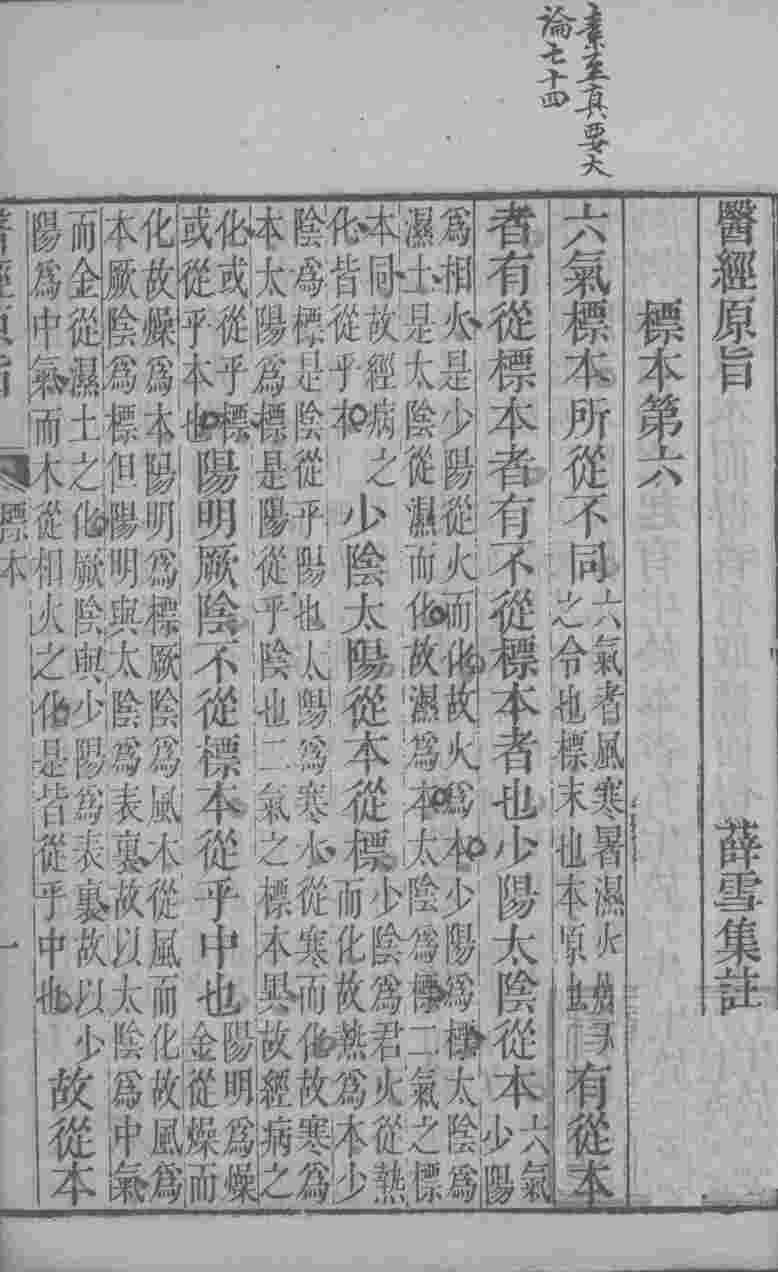 素至真要大
論七十四
醫經原旨 薛雪集註
標本第六
六氣標本所從不同
六氣者風寒暑濕火燥天
之令也標末也本原也
有從本
者有從標本者有不從標本者也少陽太陰從本
六氣
少陽
為相火是少陽從火而化故火為本少陽為標太陰為
濕土是太陰從濕而化故濕為本太陰為標二氣之標
本同故經病之
化皆從乎本
少陰太陽從本從標
少陰為君火從熱
而化故熱為本少
陰為標是陰從乎陽也太陽為寒水從寒而化故寒為
本太陽為標是陽從乎陰也二氣之標本異故經病之
化或從乎標
或從乎本也
陽明厥陰不從標本從乎中也
陽明為燥
金從燥而
化故燥為本陽明為標厥陰為風木從風而化故風為
本厥陰為標但陽明與太陰為表裏故以太陰為中氣
而金從濕土之化厥陰與少陽為表裏故以少
陽為中氣而木從相火之化是皆從乎中也
故從本
醫經原旨 標本 一